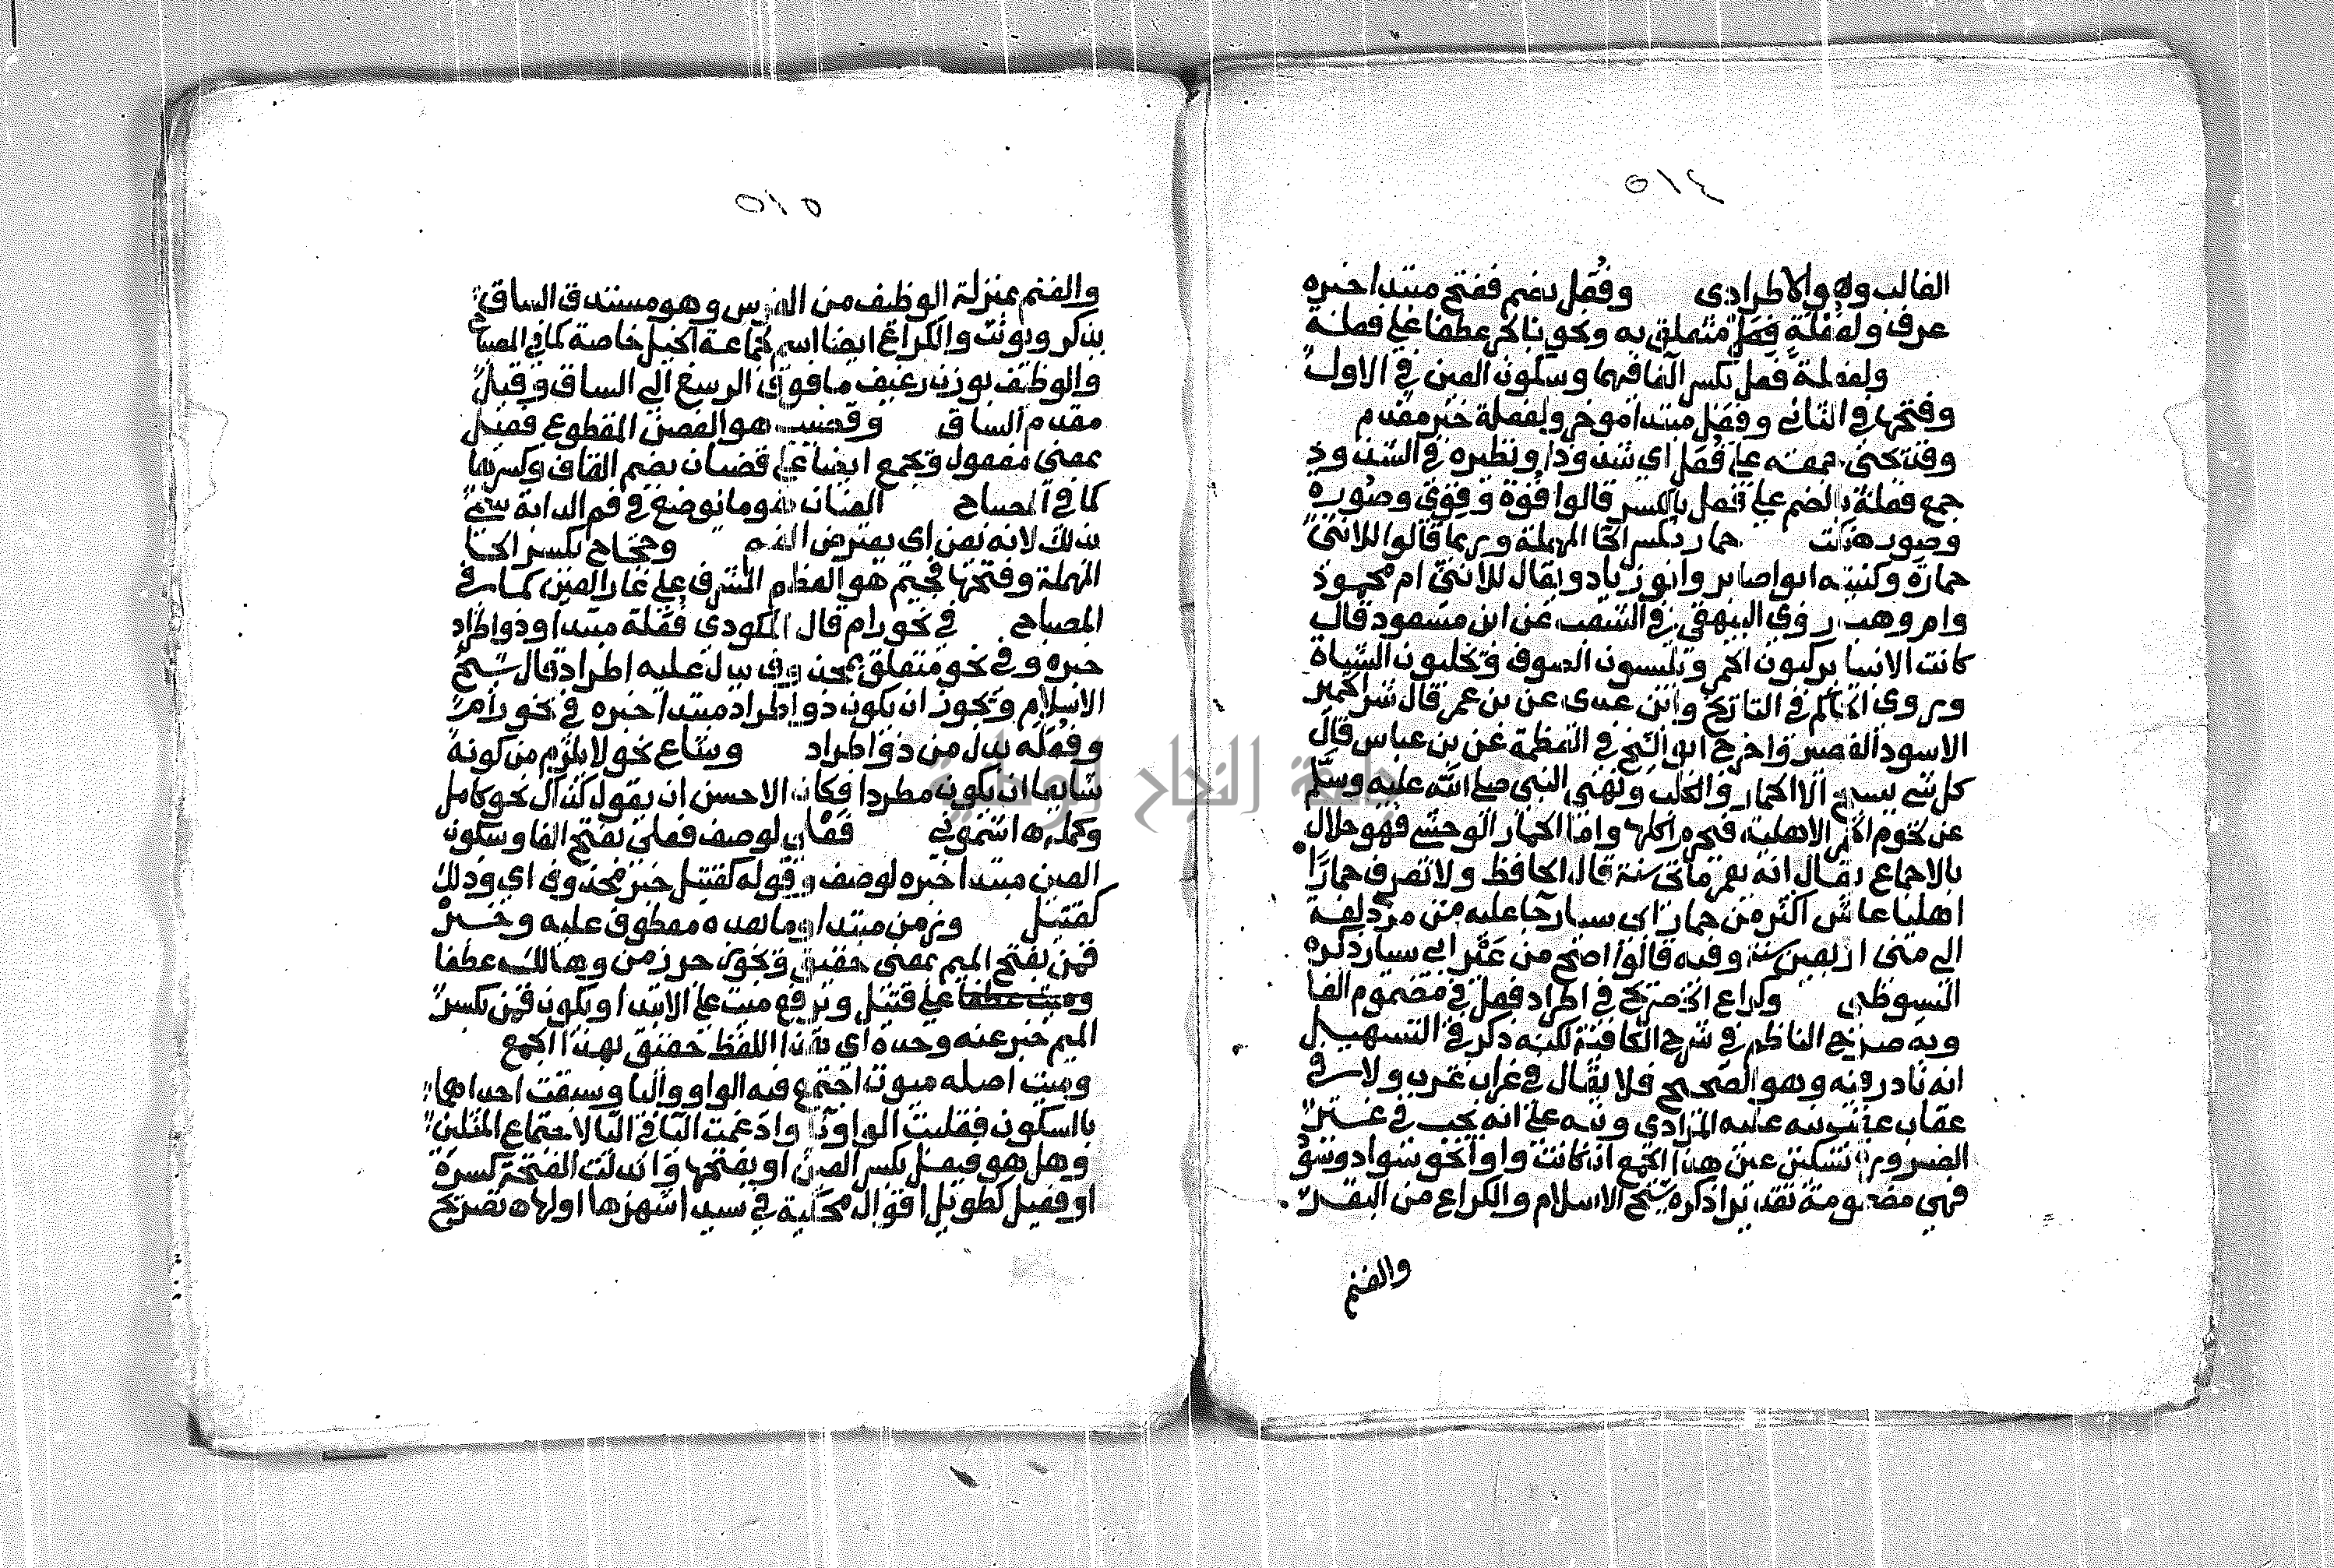 ٥١٤
الغالب ولا والاطرادى وفُعَل بضم ففتح مبتدا خبره
عرف ولفُعْلةٍ فِعَل متعلق به ونحو بالجر عطفا على فعلة
ولفعلة فعل بكسر الفا فيهما وسكون العين في الاول
وفتحها في الثاني وفعل مبتدا موخر ولفعلة خبر مقدم
وقد يجئ جمعه على فُعَل اي شذوذا ونظيره في الشذوذ
جمع فعلة بالضم على فعل بالكسر قالوا قوة وقوى وصوره
وصور حمار بكسر الحا المهملة وربما قالوا للانثى
حمارة وكنيته ابو صابر وابو زياد ويقال للانثى ام محمود
وام وهب روى البيهقي في الشعب عن ابن مسعود قال
كانت الانبيا يركبون الحمر ويلبسون الصوف ويحلبون الشياة
وروى الحاكم في التاريخ وابن عدى عن بن عمر قال شر الحمير
الاسود القصير واخرج ابو الشيخ في العظمة عن بن عباس قال
كل شي يسبح الا الحمار والكلب ونهى النبي صلى الله عليه وسلم
عن لحوم الحمر الاهلية فيحرم اكلها واما الحمار الوحشي فهو حلال
بالاجماع يقال انه يعمر مائتى سنة قال الحافظ ولا نعرف حمارًا
اهليا عاش اكثر من حمار ابى سيارة حاج عليه من مزدلفة
الى منى اربعين سنة وفيه قالوا اصح من عَيْر ابى سيار ذكره
السيوطى وكراع الخ صريح في اطراد فعل في مضموم الفا
وبه صرح الناظم في شرح الكافية لكنه ذكر في التسهيل
انه نادر فيه وهو الصحيح فلا يقال في غراب غرب ولا في
عقاب عقب نبه عليه المرادي ونبه على انه يجب في غير
الضرورة تسكين عين هذا الجمع ان كانت واوا نحو سوار وسوُ
فهي مضمومة تقديرا ذكره شيخ الاسلام والكراع من البقر
والغنم
٥١٥
والغنم بمنزلة الوظيف من الفرس وهو مستدق الساق
يذكر ويونث والكراع ايضا اسم لجماعة الخيل خاصة كما في المصباح
والوظيف بوزن رغيف ما فوق الرسغ الى الساق وقيل
مقدم الساق وقضيب هو الغصن المقطوع فعيل
بمعنى مفعول ويجمع ايضا على قضبان بضم القاف وكسرها
كما في المصباح العنان هو ما يوضع في فم الدابة سمى
بذلك لانه يعن اى يعترض الفم وحجاج بكسر الحا
المهملة وفتحها فجيم هو العظم المشرف على غار العين كما في
المصباح في نحو رام قال المكودي فُعَلة مبتدا وذو اطراد
خبره وفي نحو متعلق بمحذوف يدل عليه اطراد قال شيخ
الاسلام ويجوز ان يكون ذو اطراد مبتدا خبره في نحو رام
وفعلة بدل من ذو اطراد وشاع نحو لا يلزم من كونه
شايعا ان يكون مطردا فكان الاحسن ان يقول كذاك نحو كامل
وكمله اشموني فَعْلى لوصف فعلى بفتح الفا وسكون
العين مبتدا خبره لوصف وقوله كقتيل خبر محذوف اي وذلك
كقتيل وزمن مبتدا وما بعده معطوف عليه وخبر
قمن بفتح الميم بمعنى حقيق ويجوز جر زمن وهالك عطفا
وميت عطفا على قتيل ويرفع ميت على الابتدا ويكون قمن بكسر
الميم خبر عنه وحده اى بهذا اللفظ حقيق بهذا الجمع
وميت اصله ميوت اجتمع فيه الواو واليا وسبقت احداهما
بالسكون فقلبت الواو يا وادغمت اليا في اليا لاجتماع المثلين
وهل هو فيعل بكسر العين او بفتحها وابدلت الفتحة كسرة
او فعيل كطويل اقوال محكية في سيد اشهرها اولها تصريح